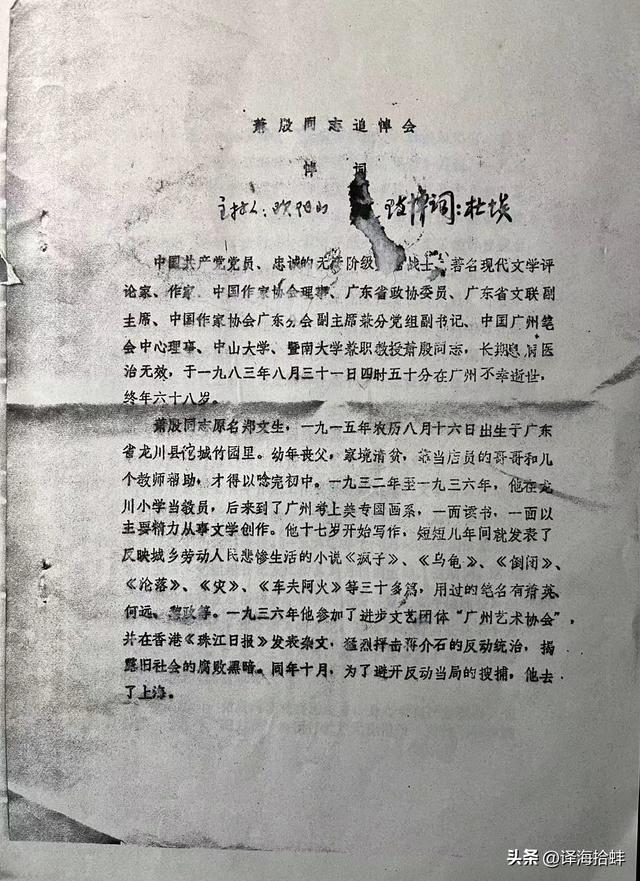 萧殷同志追悼会
悼词
主持人：欧阳山 致悼词：杜埃
中国共产党党员、忠诚的无产阶级 战士、著名现代文学评
论家、作家、中国作家协会理事、广东省政协委员、广东省文联副
主席、中国作家协会广东分会副主席兼分党组副书记、中国广州笔
会中心理事、中山大学、暨南大学兼职教授萧殷同志，长期患病医
治无效，于一九八三年八月三十一日四时五十分在广州不幸逝世，
终年六十八岁。
萧殷同志原名郑文生，一九一五年农历八月十六日出生于广东
省龙川县佗城竹园里。幼年丧父，家境清贫，靠当店员的哥哥和几
个教师帮助，才得以念完初中。一九三二年至一九三六年，他在龙
川小学当教员，后来到了广州考上美专国画系，一面读书，一面以
主要精力从事文学创作。他十七岁开始写作，短短几年间就发表了
反映城乡劳动人民悲惨生活的小说《疯子》、《乌龟》、《倒闭》、
《沦落》、《灾》、《车夫阿火》等三十多篇，用过的笔名有萧英
何远、黎政等。一九三六年他参加了进步文艺团体“广州艺术协会”，
并在香港《珠江日报》发表杂文，猛烈抨击蒋介石的反动统治，揭
露旧社会的腐败黑暗。同年十月，为了避开反动当局的搜捕，他去
了上海。
头条 @译海拾蚌